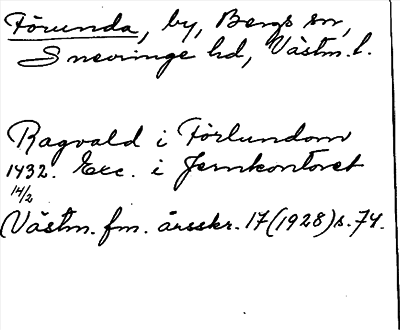 Förunda, by, Bergs sn,
Snevringe hd, Västm. l.
Ragvald i Förlundom
1432. Exc. i Jernkontoret
14/2
Västm. fm. årsskr. 17 (1928) s. 74.